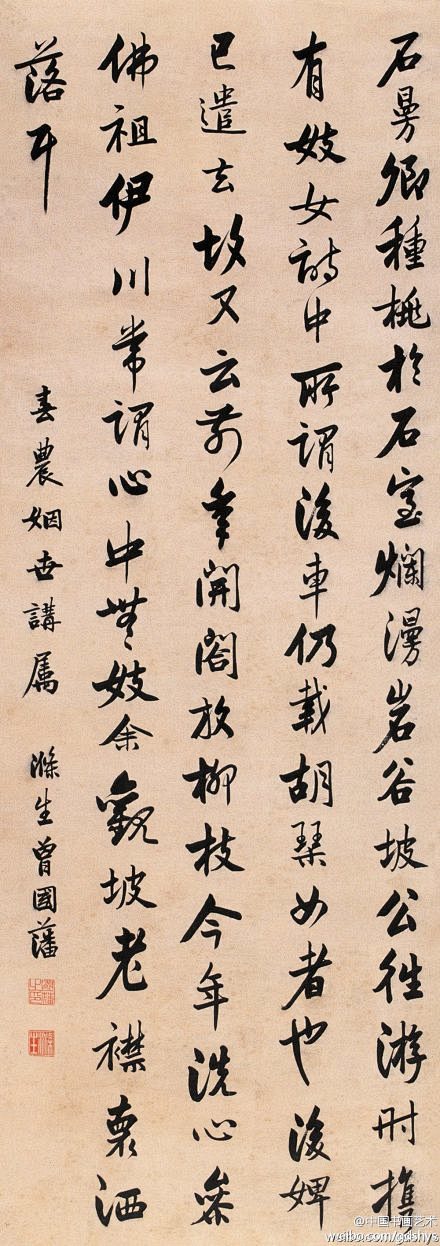 石曼卿種桃於石室爛漫岩谷坡公往游时攜
有妓女詩中所謂後車仍載胡琴女者也後婢
已遣去故又云前年開閣放柳枝今年洗心參
佛祖伊川常謂心中無妓余觀坡老襟袌洒
落耳
春農姻世講属 滌生曾國藩
@中国书画艺术
weibo.com/gdshys